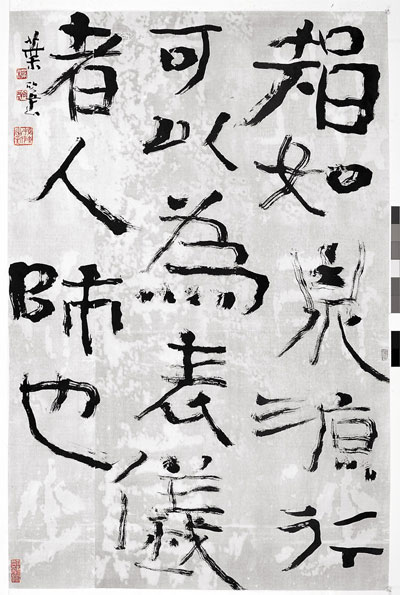 智如泉源行
可以為表儀
者人師也
葉